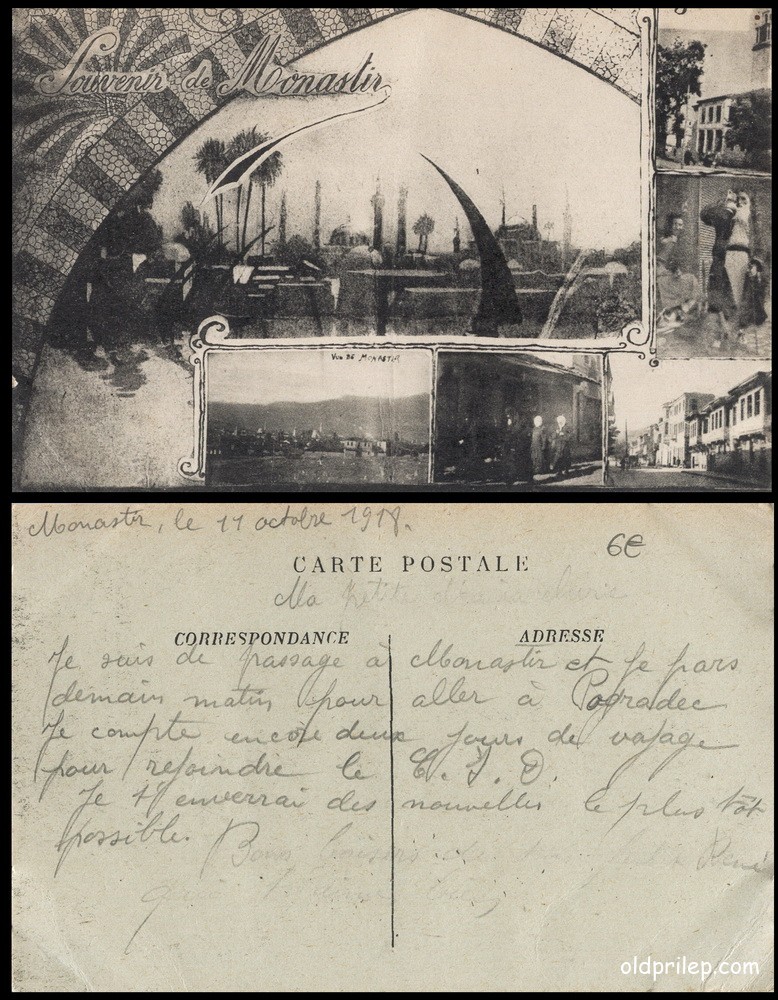 Souvenir de Monastir
VUE DE MONASTIR
Monastir, le 11 octobre 1918.
6€
CARTE POSTALE
Ma Petite chérie
CORRESPONDANCE
ADRESSE
Je suis de passage à Monastir et je pars
demain matin pour aller à Pogradec
Je compte encore deux jours de voyage
pour rejoindre le C. I. D.
Je t'enverrai des nouvelles le plus tôt
possible.
Bons baisers de ton René
oldprilep.com